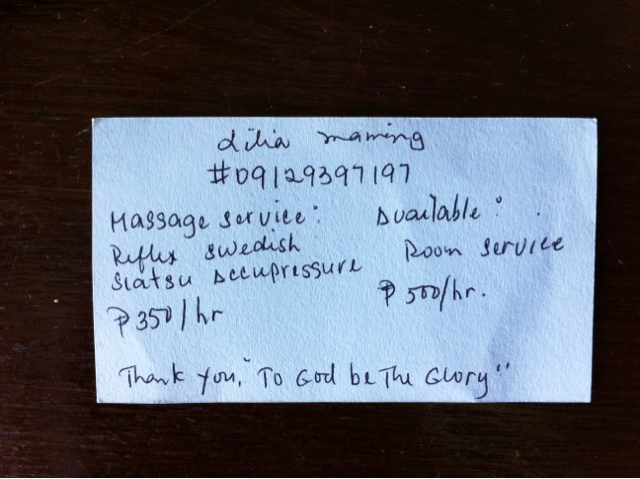 Lilia maming
#09129397197
Massage service: Available:
Reflex swedish Room service
siatsu Accupressure
₱350/hr ₱500/hr.
Thank you, "To God be The Glory"